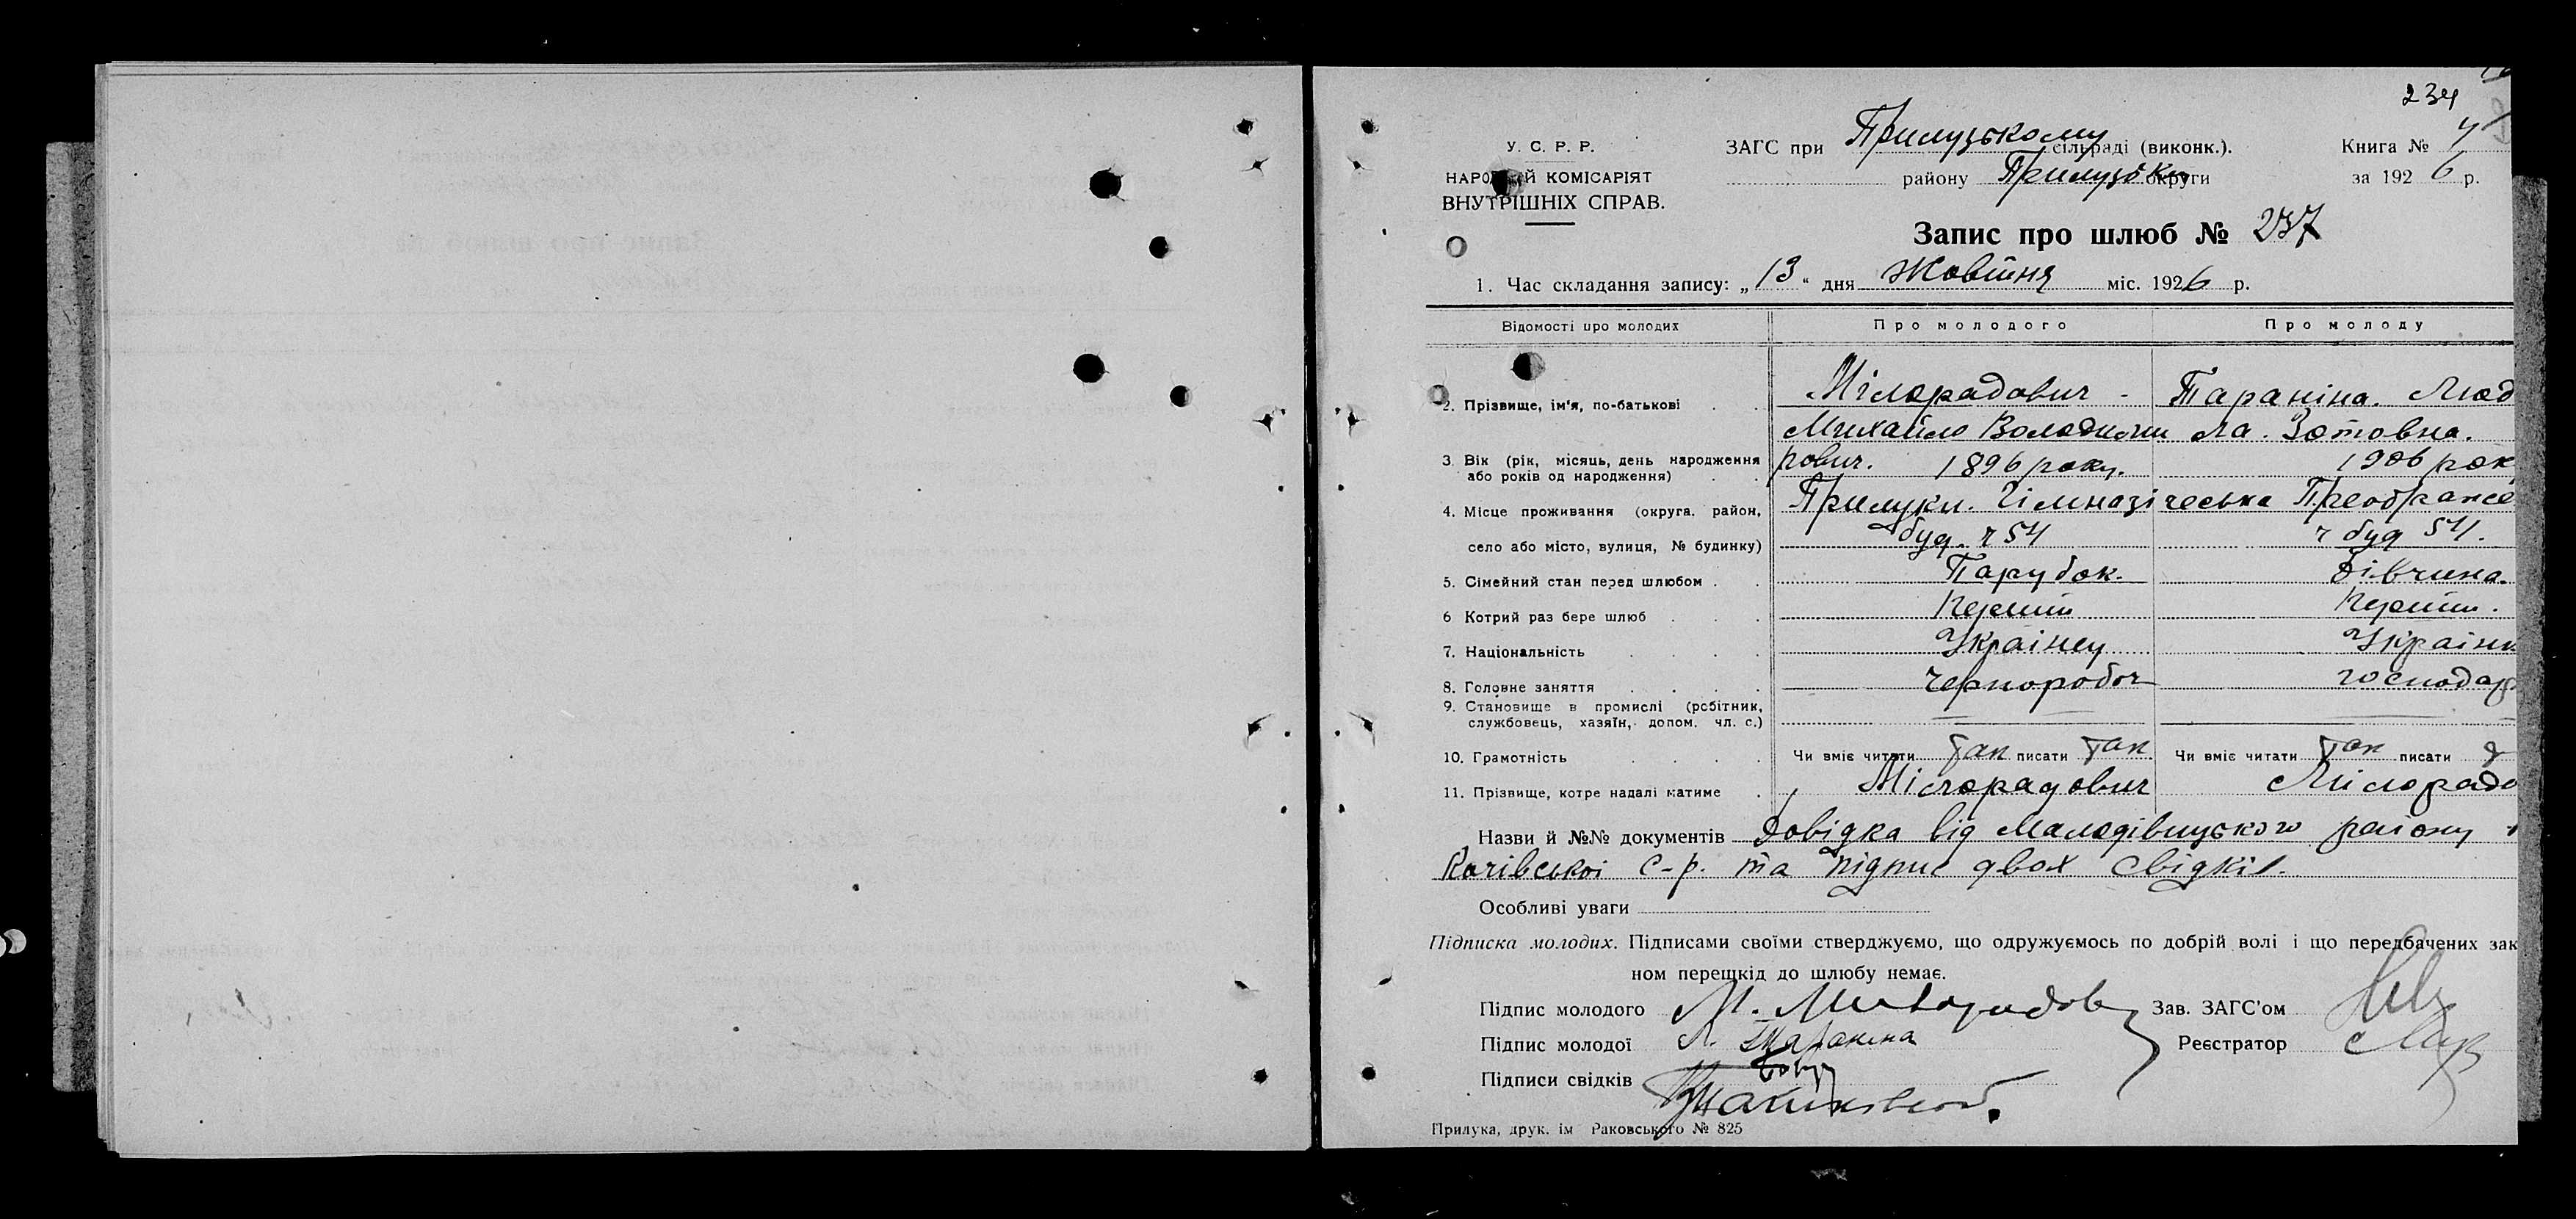 234
У. С. Р. Р.
НАРОДНИЙ КОМІСАРІЯТ
ВНУТРІШНІХ СПРАВ.
ЗАГС при Прилузькому сільраді (виконк.).
району Прилузьки округи
Книга № 4
за 1926 р.
Запис про шлюб № 237
1. Час складання запису: „13“ дня Жовтня міс. 1926 р.
Відомості про молодих Про молодого Про молоду
2. Прізвище, ім'я, по-батькові Мілорадович - Тараніна. Люд
Михайло Володими ла. Зотовна.
3. Вік (рік, місяць, день народження рович. 1896 року. 1906 рок
або років од народження)
4. Місце проживання (округа, район, Прилуки. Гімназі ческа Преображе
село або місто, вулиця, № будинку) буд. ч 54 ч буд 54.
5. Сімейний стан перед шлюбом Парубок. Дівчина.
6. Котрий раз бере шлюб Перший Перший.
7. Національність Українец Українк
8. Головне заняття Чернороboч господар
9. Становище в промислі (робітник,
службовець, хазяїн, допом. чл. с.)
10. Грамотність Чи вміє читати Так писати Так Чи вміє читати Так писати
11. Прізвище, котре надалі матиме Мілорадович Мілорадо
Назви й №№ документів Довідка від Малодівицького району
Рочівської с-р. та підпис двох свідків.
Особливі уваги
Підписка молодих. Підписами своїми стверджуємо, що одружуємось по добрій волі і що передбачених зак
ном перешкід до шлюбу немає.
Підпис молодого М. Милорадов Зав. ЗАГС'ом
Підпис молодої Л. Таранина Реєстратор
Підписи свідків
Прилука, друк. ім Раковського № 825